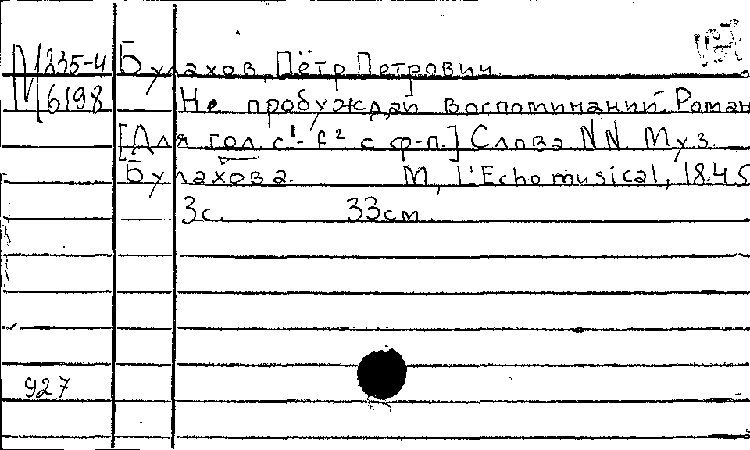 М 235-4
6198
Булахов, Пётр Петрович
Не пробуждай воспоминаний. Роман
[Для гол. с¹- с² с ф-п.] Слова NN. Муз.
Булахова. М., L'Echo musical, 1845
3с. 33см.
927